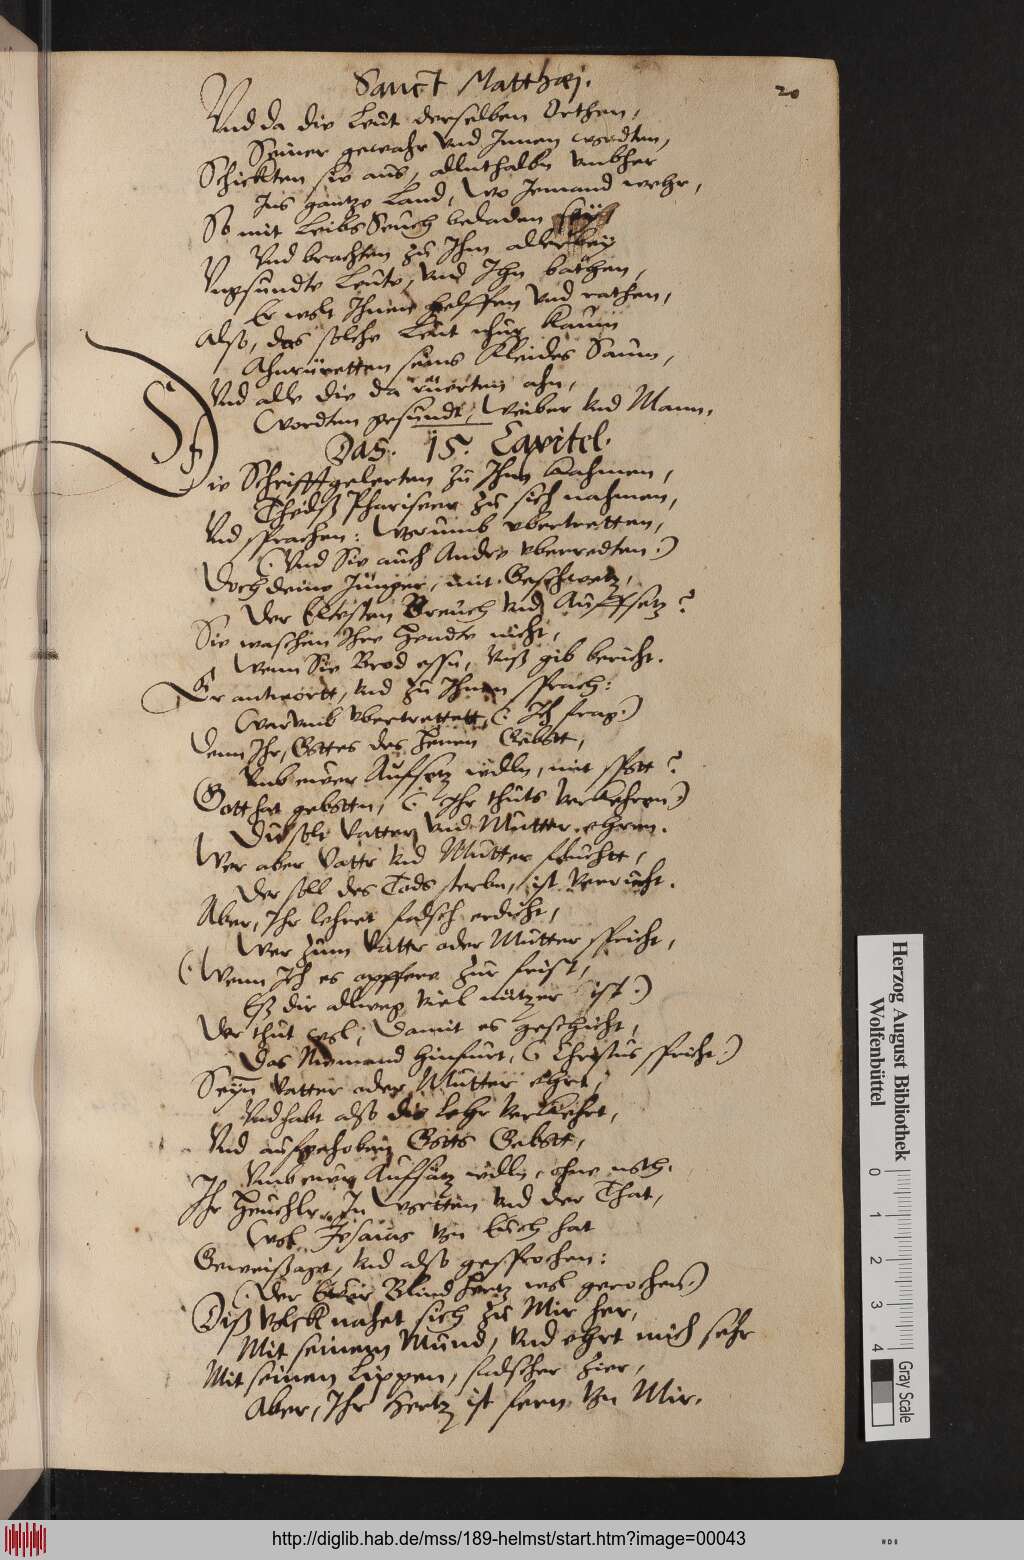 Sanct Matthæj.
20
Vnd da die Leut derselben Orthen,
Seiner gewahr vnd Innen wordten,
Schickten sie aus, allenthalbn vmbher
Ins gantze Land, wo Iemand wehr,
So mit Leibs Seuch beladen sey
Vnd brachten zu Ihm allerley
Vngsundte Leute, vnd Ihn bathen,
Er wolt Ihnen helffen vnd rathen,
Also, das solche Leut nhur kaum
Ahnrüretten seins Kleides Saum,
Vnd alle die da rüerten ahn,
Wordten gesundt, Weiber vnd Mann.
Das. 15. Capitel.
Die Schrifftgelerten zu Ihm kahmen,
Theils Phariseer zu sich nahmen,
Vnd sprachen: Worumb vbertretten,
(: Vnd Sie auch Andre vberredten :)
Doch deine Jünger, mit Geschwetz,
Der Eltesten Breuch vnd Auffsetz?
Sie waschen Ihre Hendte nicht,
Wenn Sie Brod essn, vnß gib bericht.
Er antwortt, vnd zu Ihnen sprach:
Warumb vbertrettett, (: Ich frag :)
Denn Ihr, Gottes des Herren Gebott,
Vmb ewer Aufsetz willn, mit spott?
Gott hat gebottn, (: Ihr thuts verkehren :)
Du solt Vatter vnd Mutter ehren.
Wer aber Vattr vnd Mutter fluchtt,
Der soll des Tods sterbn, ist verrucht.
Aber, Ihr lehret falsch erdicht,
Wer zum Vattr oder Mutter spricht,
(: Wenn Ich es opffere zur frist,
Eß dir allweg viel nützer ist :)
Der thut wol; Damit es geschicht,
Das Niemand hinfurt, (: Christus spricht :)
Seÿn Vatter oder Mutter ehrt,
Vnd habt also die Lehr verkehrt,
Vnd aufgehoben Gotts Gebott,
Vmb ewr Aufsätz willn, ohne noth.
Ihr Heuchlr In Wortten vnd der That,
Wol Jesaias von Euch hat
Geweissagt, vnd also gesprochen:
(: Der Ewer Blind Hertz wol gerochen :)
Diß Volck nahet sich zu Mir her,
Mit seinem Mund, vnd ehrt mich sehr
Mit seinen Lippen, falscher Zier,
Aber, Ihr Hertz ist fern von Mir.
Herzog August Bibliothek
Wolfenbüttel
0 1 2 3 4
Gray Scale
http://diglib.hab.de/mss/189-helmst/start.htm?image=00043